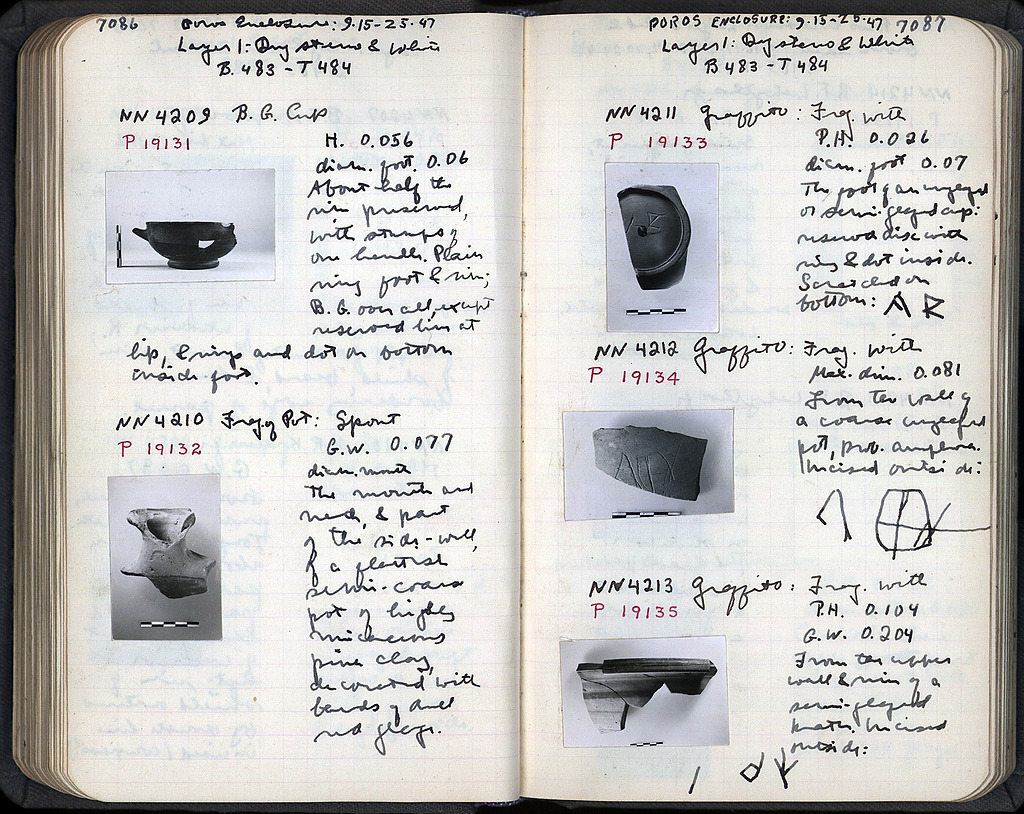 7086 Poros Enclosure: 9-15-25.47
Layer 1: Dry stereo & White
B 483 - T 484
NN 4209 B.G. Cup
P 19131
H. 0.056
diam. foot. 0.06
About half the
rim preserved,
with stumps of
one handle. Plain
ring foot & rim;
B.G. over all, except
reserved line at
lip, & rings and dot on bottom
inside foot.
NN 4210 Frag. of Pot: Spout
P 19132
G.W. 0.077
diam. mouth
The mouth and
neck, & part
of the side-wall,
of a
semi-coarse
pot of highly
micaceous
pink clay,
decorated with
bands of dull
red glaze.
POROS ENCLOSURE: 9-15-25.47 7087
Layer 1: Dry stereo & White
B 483 - T 484
NN 4211 Graffito: Frag. with
P 19133
P.H. 0.026
diam. foot 0.07
The foot of an unglazed
or semi-glazed cup:
reserved disc with
ring & dot inside.
Scratched on
bottom: A R
NN 4212 Graffito: Frag. with
P 19134
Max. dim. 0.081
From the wall of
a coarse unglazed
pot, prob. amphora.
Incised outside:
NN 4213 Graffito: Frag. with
P 19135
P.H. 0.104
G.W. 0.204
From the upper
wall & rim of a
semi-glazed
krater. Incised
outside: